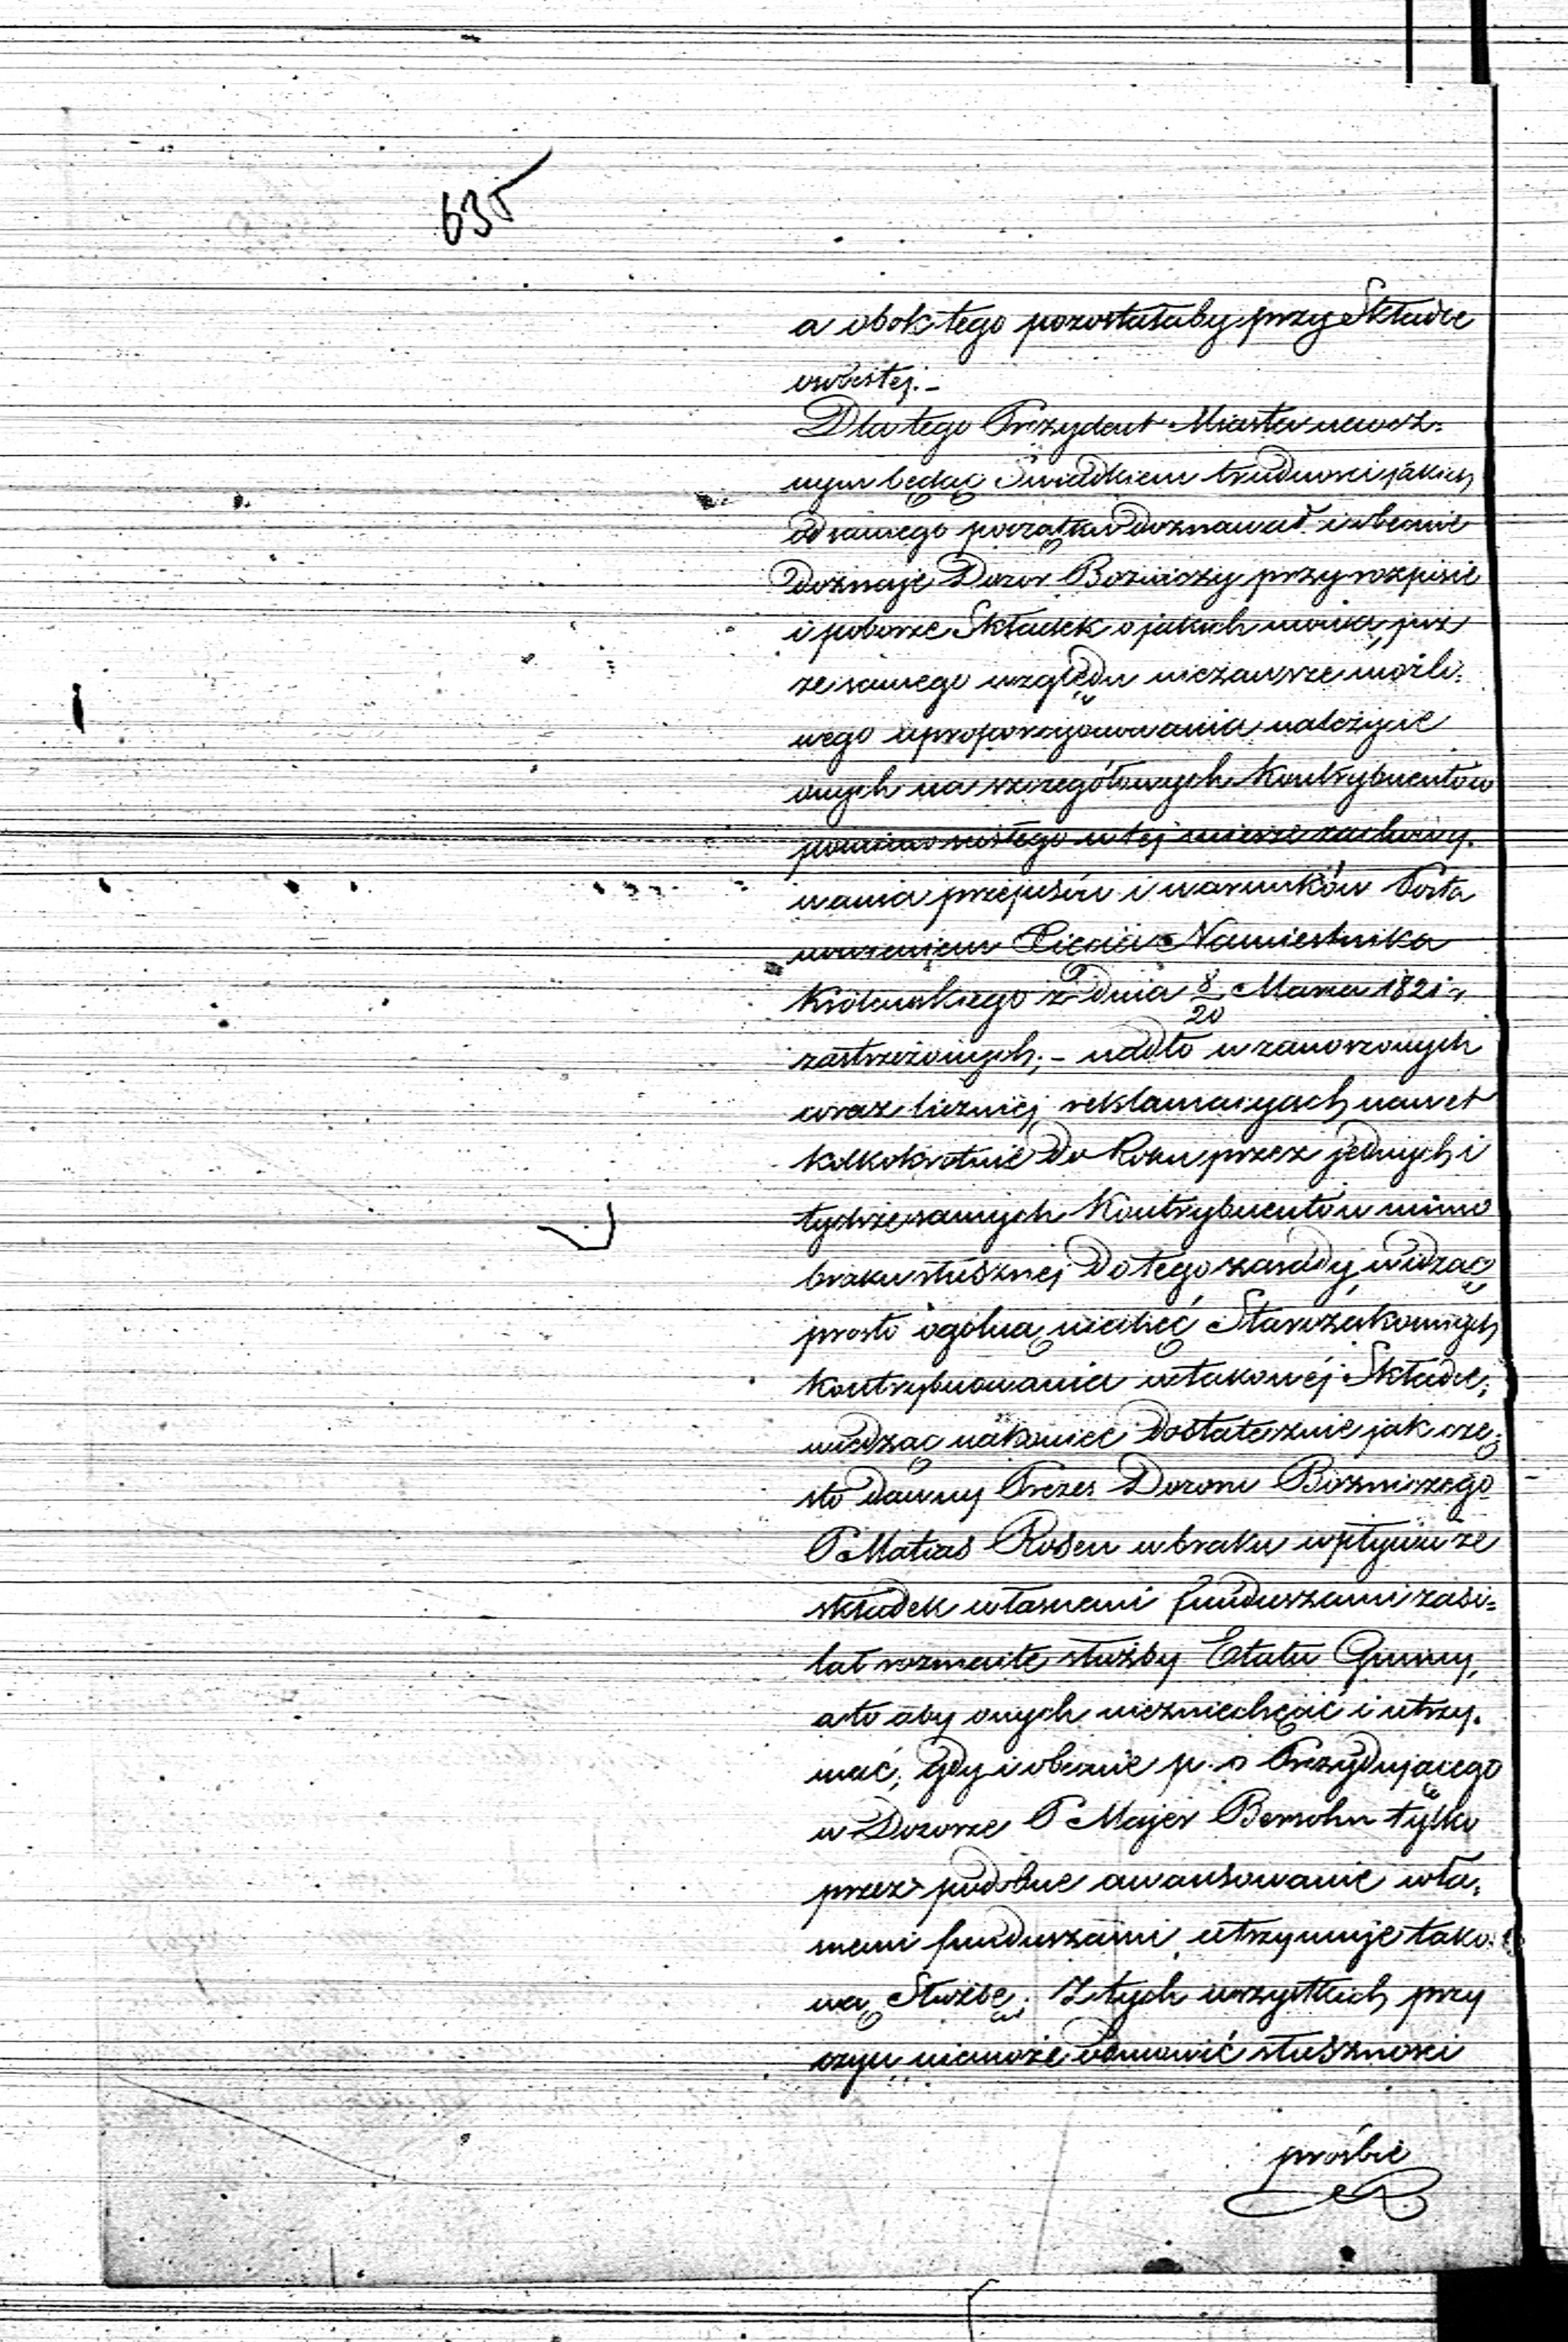 635
a obok tego pozostałaby przy Składce
osobistej.-
Dla tego Prezydent Miasta naocz-
nym będąc Świadkiem trudności jakich
od samego początku doznawał i obecnie
doznaje Dozór Bożniczy przy rozpisie
i poborze Składek o jakich mowa, już
ze samego względu niezawsze możli-
wego uproporcyonowania należycie
onych na szczegółowych Kontrybuentów
pomimo ścisłego w tej mierze zachowy-
wania przepisów i warunków Posta
nowieniem Xięcia Namiestnika
Królewskiego z dnia 8/20 Marca 1821 r.
zastrzeżonych; - nadto w zanoszonych
coraz liczniej reklamacyach nawet
kilkokrotnie do Roku przez jednych i
tychże samych Kontrybuentów mimo
braku słusznej do tego zasady, widząc
prosto ogólną niechęć Starozakonnych
kontrybuowania w takowej Składce;
wiedząc nakoniec dostatecznie jak czę-
sto dawny Prezes Dozoru Bożniczego
P Matias Rosen w braku wpływu ze
składek własnemi funduszami zasi-
lał rozmaite służby Etatu Gminy,
a to aby onych niezniechęcić i utrzy-
mać; gdy i obecnie p. o Prezydującego
w Dozorze P Majer Bersohn tylko
przez podobne awansowanie wła-
snemi funduszami utrzymuje tako-
wą Służbę. Z tych wszystkich przy
czyn niemoże odmówić słuszności
prośbie